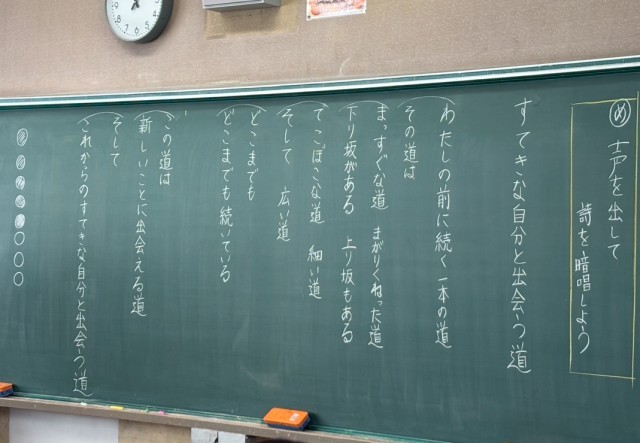 め 声を出して
詩を暗唱しよう
すてきな自分と出会う道
わたしの前に続く一本の道
その道は
まっすぐな道 まがりくねった道
下り坂がある 上り坂もある
でこぼこな道 細い道
そして 広い道
どこまでも
どこまでも続いている
この道は
新しいことに出会える道
そして
これからのすてきな自分と出会う道